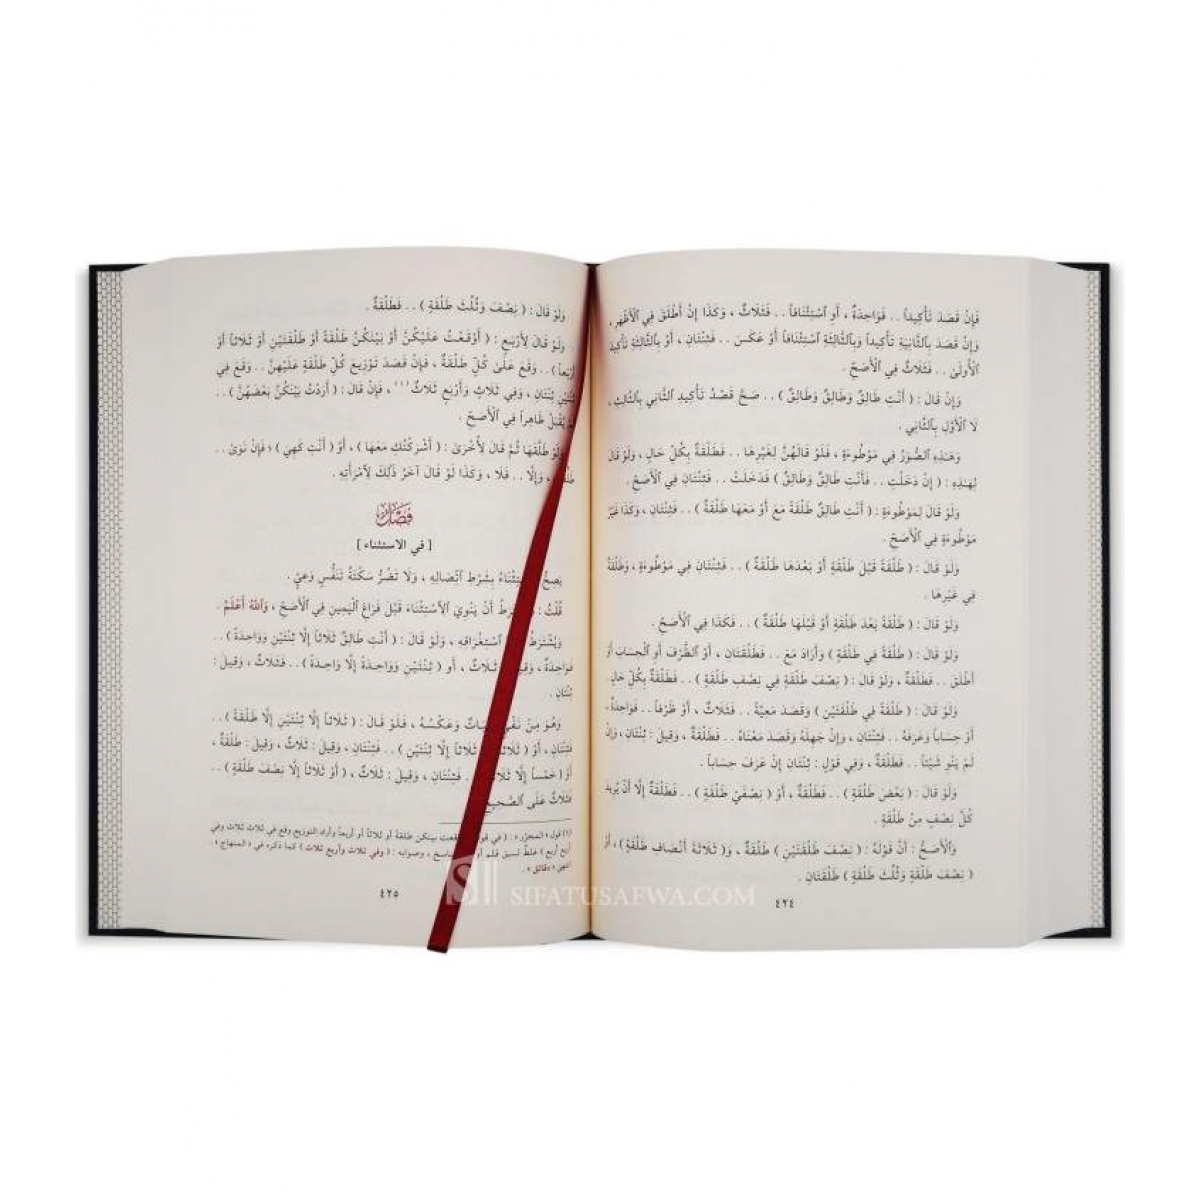 فَإِنْ قَصَدَ تَأْكِيداً . . فَوَاحِدَةٌ ، أَوِ ٱسْتِئْنَافاً . . فَثَلَاثٌ ، وَكَذَا إِنْ أَطْلَقَ فِي ٱلْأَظْهَرِ ،
وَإِنْ قَصَدَ بِٱلثَّانِيَةِ تَأْكِيداً وَبِٱلثَّالِثَةِ ٱسْتِئْنَافاً أَوْ عَكَسَ . . فَثِنْتَانِ ، أَوْ بِٱلثَّالِثَةِ تَأْكِيدَ
ٱلْأُولَىٰ . . فَثَلَاثٌ فِي ٱلْأَصَحِّ .
وَإِنْ قَالَ : ( أَنْتِ طَالِقٌ وَطَالِقٌ وَطَالِقٌ ) . . صَحَّ قَصْدُ تَأْكِيدِ ٱلثَّانِي بِٱلثَّالِثِ ،
لَا ٱلْأَوَّلِ بِٱلثَّانِي .
وَهَـٰذِهِ ٱلصُّوَرُ فِي مَوْطُوءَةٍ ، فَلَوْ قَالَهُنَّ لِغَيْرِهَا . . فَطَلْقَةٌ بِكُلِّ حَالٍ ، وَلَوْ قَالَ
لِهَـٰذِهِ : ( إِنْ دَخَلْتِ . . فَأَنْتِ طَالِقٌ وَطَالِقٌ ) فَدَخَلَتْ . . فَثِنْتَانِ فِي ٱلْأَصَحِّ .
وَلَوْ قَالَ لِمَوْطُوءَةٍ : ( أَنْتِ طَالِقٌ طَلْقَةً مَعَ أَوْ مَعَهَا طَلْقَةٌ ) . . فَثِنْتَانِ ، وَكَذَا غَيْرُ
مَوْطُوءَةٍ فِي ٱلْأَصَحِّ .
وَلَوْ قَالَ : ( طَلْقَةً قَبْلَ طَلْقَةٍ أَوْ بَعْدَهَا طَلْقَةٌ ) . . فَثِنْتَانِ فِي مَوْطُوءَةٍ ، وَطَلْقَةٌ
فِي غَيْرِهَا .
وَلَوْ قَالَ : ( طَلْقَةً بَعْدَ طَلْقَةٍ أَوْ قَبْلَهَا طَلْقَةٌ ) . . فَكَذَا فِي ٱلْأَصَحِّ .
وَلَوْ قَالَ : ( طَلْقَةً فِي طَلْقَةٍ ) وَأَرَادَ مَعَ . . فَطَلْقَتَانِ ، أَوِ ٱلظَّرْفَ أَوِ ٱلْحِسَابَ أَوْ
أَطْلَقَ . . فَطَلْقَةٌ ، وَلَوْ قَالَ : ( نِصْفَ طَلْقَةٍ فِي نِصْفِ طَلْقَةٍ ) . . فَطَلْقَةٌ بِكُلِّ حَالٍ .
وَلَوْ قَالَ : ( طَلْقَةً فِي طَلْقَتَيْنِ ) وَقَصَدَ مَعِيَّةً . . فَثَلَاثٌ ، أَوْ ظَرْفاً . . فَوَاحِدَةٌ ،
أَوْ حِسَاباً وَعَرَفَهُ . . فَثِنْتَانِ ، وَإِنْ جَهِلَهُ وَقَصَدَ مَعْنَاهُ . . فَطَلْقَةٌ ، وَقِيلَ : ثِنْتَانِ ، وَإِنْ
لَمْ يَنْوِ شَيْئاً . . فَطَلْقَةٌ ، وَفِي قَوْلٍ : ثِنْتَانِ إِنْ عَرَفَ حِسَاباً .
وَلَوْ قَالَ : ( بَعْضَ طَلْقَةٍ ) . . فَطَلْقَةٌ ، أَوْ ( نِصْفَيْ طَلْقَةٍ ) . . فَطَلْقَةٌ إِلَّا أَنْ يُرِيدَ
كُلَّ نِصْفٍ مِنْ طَلْقَةٍ .
وَٱلْأَصَحُّ : أَنَّ قَوْلَهُ : ( نِصْفَ طَلْقَتَيْنِ ) طَلْقَةٌ ، وَ( ثَلَاثَةَ أَنْصَافِ طَلْقَةٍ ) ، أَوْ
( نِصْفَ طَلْقَةٍ وَثُلُثَ طَلْقَةٍ ) طَلْقَتَانِ .
٤٢٤
وَلَوْ قَالَ : ( نِصْفَ وَثُلُثَ طَلْقَةٍ ) . . فَطَلْقَةٌ .
وَلَوْ قَالَ لِأَرْبَعٍ : ( أَوْقَعْتُ عَلَيْكُنَّ أَوْ بَيْنَكُنَّ طَلْقَةً أَوْ طَلْقَتَيْنِ أَوْ ثَلَاثاً أَوْ
أَرْبَعاً ) . . وَقَعَ عَلَىٰ كُلٍّ طَلْقَةٌ ، فَإِنْ قَصَدَ تَوْزِيعَ كُلِّ طَلْقَةٍ عَلَيْهِنَّ . . وَقَعَ فِي
ثِنْتَيْنِ ثِنْتَانِ ، وَفِي ثَلَاثٍ وَأَرْبَعٍ ثَلَاثٌ (١) ، فَإِنْ قَالَ : ( أَرَدْتُ بَيْنَكُنَّ بَعْضَهُنَّ ) . .
لَمْ يُقْبَلْ ظَاهِراً فِي ٱلْأَصَحِّ .
وَلَوْ طَلَّقَهَا ثُمَّ قَالَ لِأُخْرَىٰ : ( أَشْرَكْتُكِ مَعَهَا ) ، أَوْ ( أَنْتِ كَهِيَ ) ؛ فَإِنْ نَوَىٰ . .
طَلُقَتْ ، وَإِلَّا . . فَلَا ، وَكَذَا لَوْ قَالَ آخَرُ ذَلِكَ لِٱمْرَأَتِهِ .
فَصْلٌ
[ في الاستثناء ]
يَصِحُّ بِشَرْطِ ٱتِّصَالِهِ ، وَلَا تَضُرُّ سَكْتَةُ تَنَفُّسٍ وَعِيٍّ .
قُلْتُ : أَنْ يَنْوِيَ ٱلِٱسْتِثْنَاءَ قَبْلَ فَرَاغِ ٱلْيَمِينِ فِي ٱلْأَصَحِّ ، وَٱللهُ أَعْلَمُ .
وَيُشْتَرَطُ ٱسْتِغْرَاقِهِ ، وَلَوْ قَالَ : ( أَنْتِ طَالِقٌ ثَلَاثاً إِلَّا ثِنْتَيْنِ وَوَاحِدَةً ) . .
فَوَاحِدَةٌ ، وَقِيلَ : ثَلَاثٌ ، أَوْ ( ثِنْتَيْنِ وَوَاحِدَةً إِلَّا وَاحِدَةً ) . . فَثَلَاثٌ ، وَقِيلَ :
ثِنْتَانِ .
وَهُوَ مِنْ نَفْيٍ وَعَكْسُهُ ، فَلَوْ قَالَ : ( ثَلَاثاً إِلَّا ثِنْتَيْنِ إِلَّا طَلْقَةً ) . .
فَثِنْتَانِ ، أَوْ ( ثَلَاثاً إِلَّا ثِنْتَيْنِ ) . . فَثِنْتَانِ ، وَقِيلَ : ثَلَاثٌ ، وَقِيلَ : طَلْقَةٌ ،
أَوْ ( خَمْساً إِلَّا ثَلَاثاً ) . . فَثِنْتَانِ ، وَقِيلَ : ثَلَاثٌ ، ( أَوْ ثَلَاثاً إِلَّا نِصْفَ طَلْقَةٍ ) . .
فَثَلَاثٌ عَلَى ٱلصَّحِيحِ
(١) قول « المحرَّر » : ( بينكن طلقة أو ثلاثاً أو أربعاً وأراد التوزيع وقع في ثلاث ثلاث وفي
أربع أربع ) غلطٌ لسبق قلم أو ، وصوابه : ( وفي ثلاث وأربع ثلاث ) كما ذكره في « المنهاج » .
انتهى « دقائق » .
٤٢٥
SIFATUSAFWA.COM